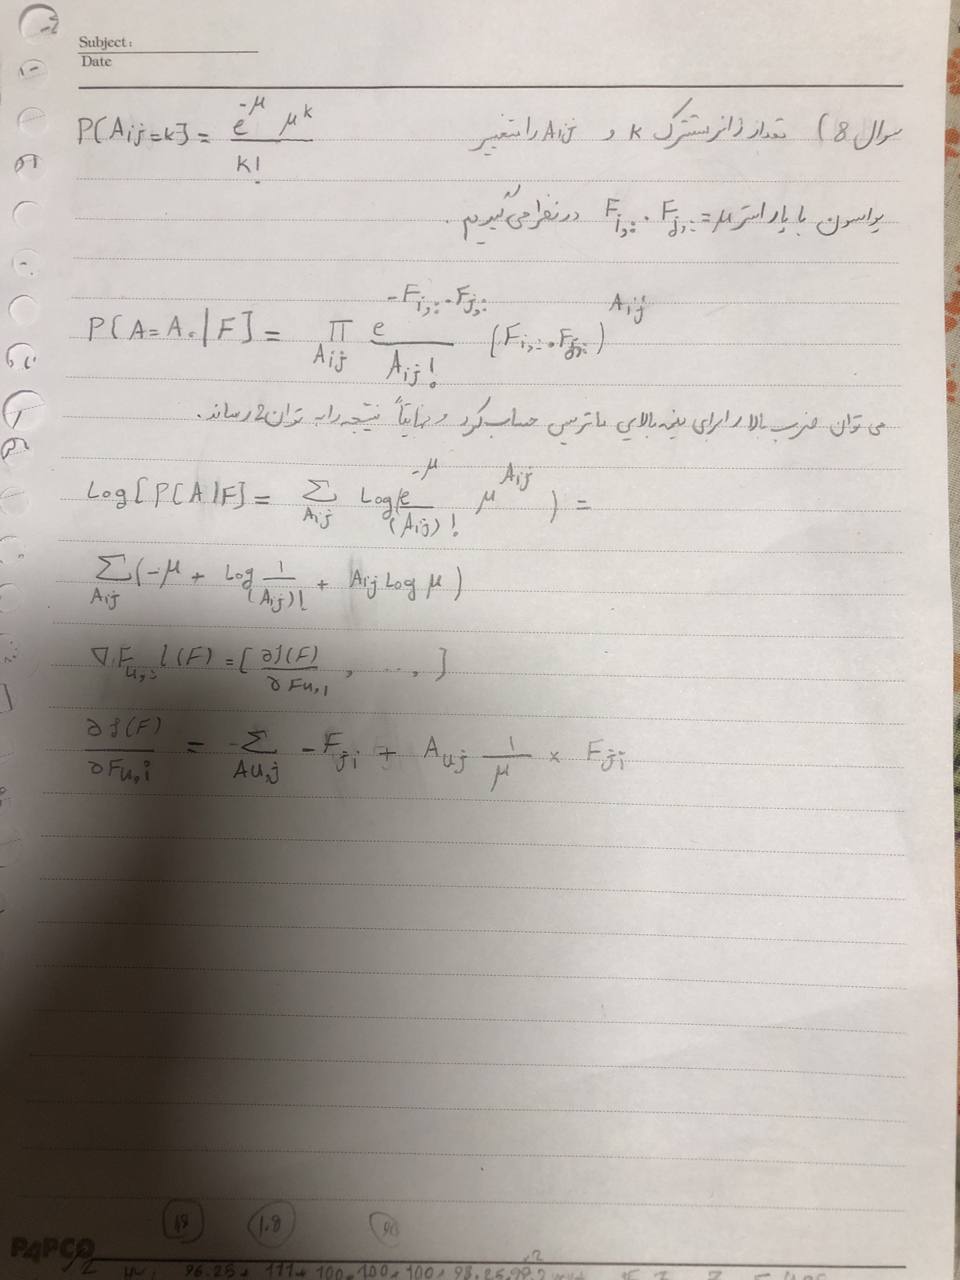 Subject:
Date
سوال 8) تعداد ژانر مشترک k و Aij را متغیر P[Aij=k] = e^-μ μ^k / k!
پواسون با پارامتر μ = Fi,: . Fj,: در نظر می گیریم.
P[A=A0|F] = Π_Aij e^(-Fi,: . Fj,:) / Aij! (Fi,: . Fj,:)^Aij
می توان ضرب بالا را برای نیمه بالایی ماتریس حساب کرد و نهایتاً نتیجه را به توان 2 رساند.
Log[P[A|F] = Σ_Aij Log(e^-μ / (Aij)! μ^Aij) =
Σ_Aij (-μ + Log 1/(Aij)! + Aij Log μ)
∇Fu,: l(F) = [∂l(F)/∂Fu,1 , ..., ]
∂l(F)/∂Fu,i = Σ_Au,j -Fji + Auj 1/μ × Fji
18 1.8
PAPCO